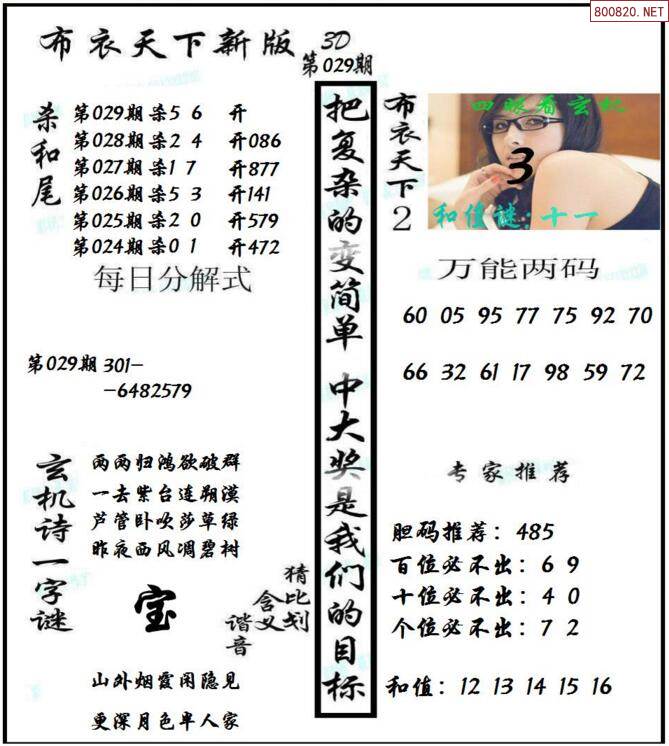 800820.NET
布衣天下新版 3D
第029期
杀和尾
第029期 杀5 6 开
第028期 杀2 4 开086
第027期 杀1 7 开877
第026期 杀5 3 开141
第025期 杀2 0 开579
第024期 杀0 1 开472
每日分解式
第029期 301-
-6482579
玄机诗一字谜
两两归鸿欲破群
一去紫台连朔漠
芦管卧吹莎草绿
昨夜西风凋碧树
宝
猜比划
含义
谐音
山外烟霞闲隐见
更深月色半人家
把复杂的变简单 中大奖是我们的目标
布衣天下2
四眼看玄机
3
和值谜:十一
万能两码
60 05 95 77 75 92 70
66 32 61 17 98 59 72
专家推荐
胆码推荐：485
百位必不出：6 9
十位必不出：4 0
个位必不出：7 2
和值：12 13 14 15 16